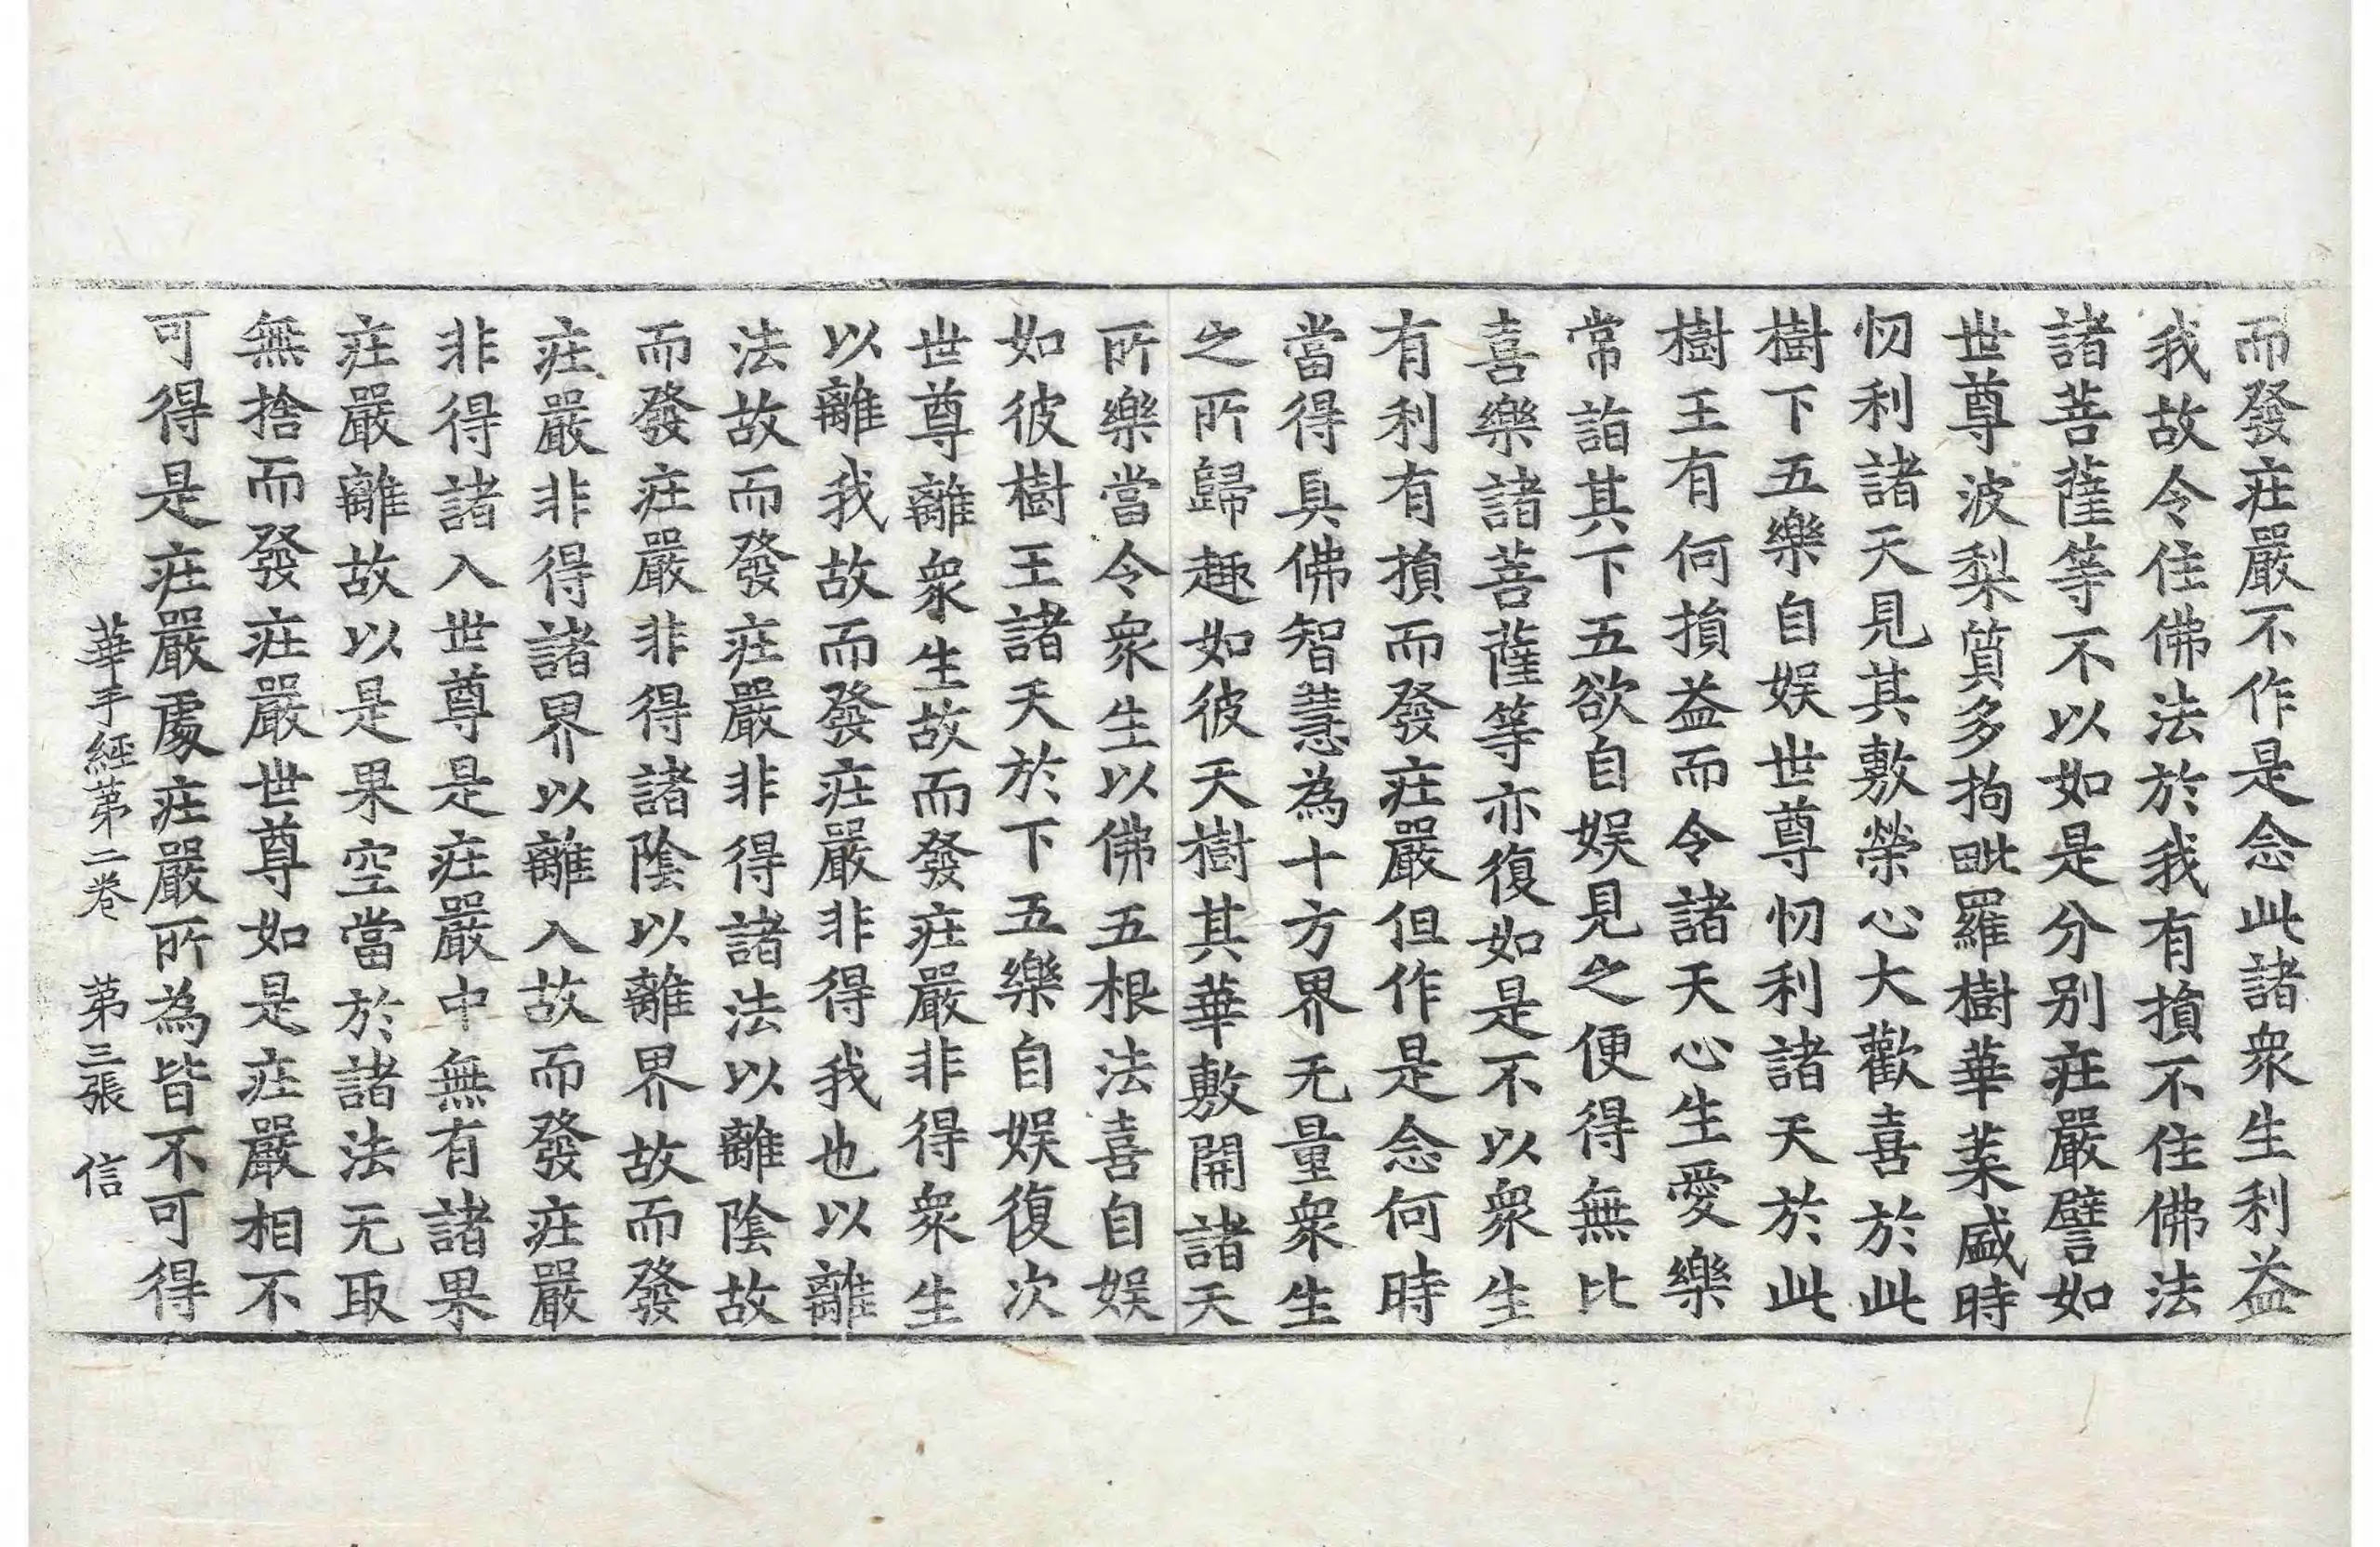 而發疰嚴不作是念此諸衆生利益
我故令住佛法於我有損不住佛法
諸菩薩等不以如是分别疰嚴譬如
世尊波梨質多拘毗羅樹華菓盛時
忉利諸天見其敷榮心大歡喜於此
樹下五樂自娱世尊忉利諸天於此
樹王有何損益而令諸天心生愛樂
常詣其下五欲自娱見之便得無比
喜樂諸菩薩等亦復如是不以衆生
有利有損而發疰嚴但作是念何時
當得具佛智慧為十方界无量衆生
之所歸趣如彼天樹其華敷開諸天
所樂當令衆生以佛五根法喜自娱
如彼樹王諸天於下五樂自娱復次
世尊離衆生故而發疰嚴非得衆生
以離我故而發疰嚴非得我也以離
法故而發疰嚴非得諸法以離陰故
而發疰嚴非得諸陰以離界故而發
疰嚴非得諸界以離入故而發疰嚴
非得諸入世尊是疰嚴中無有諸果
疰嚴離故以是果空當於諸法无取
無捨而發疰嚴世尊如是疰嚴相不
可得是疰嚴處疰嚴所為皆不可得
華手經第二卷 第三張 信